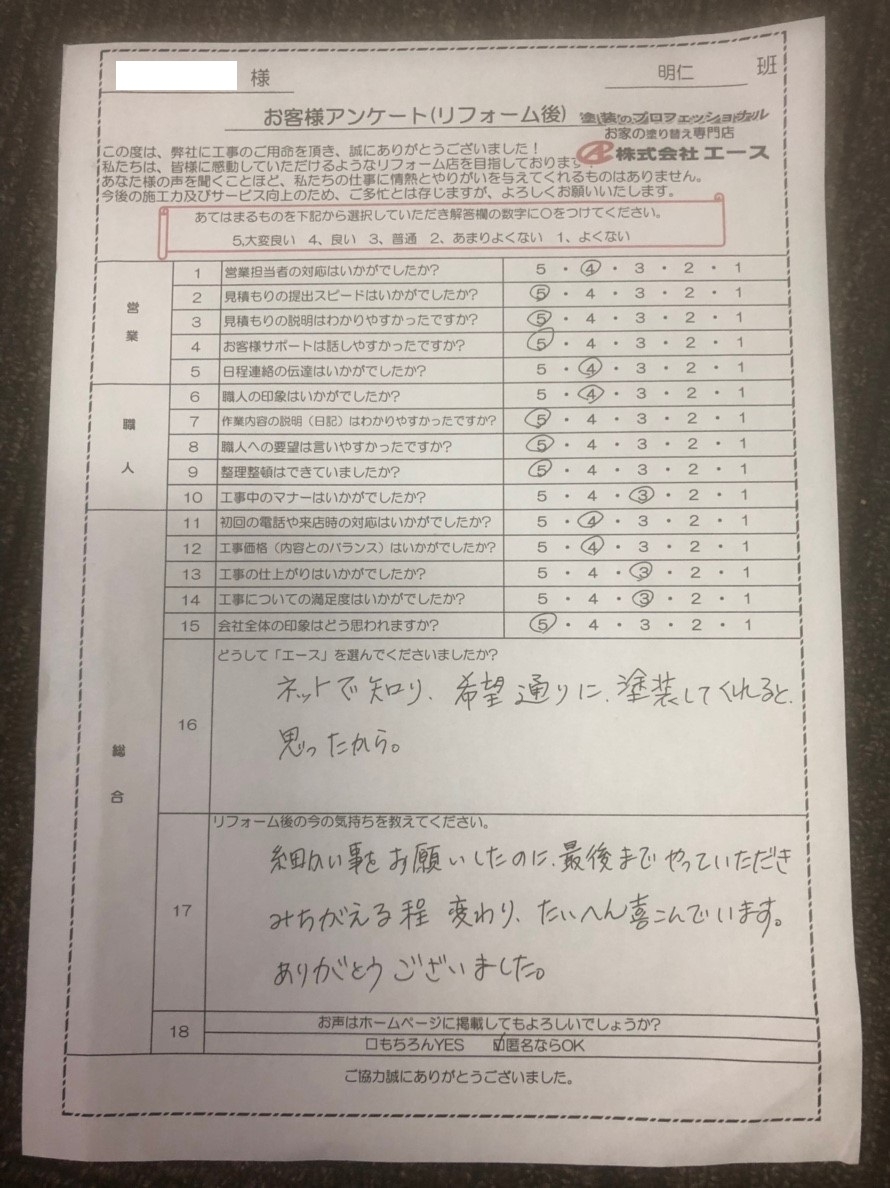 様
明仁 班
お客様アンケート(リフォーム後)
塗装のプロフェッショナル
お家の塗り替え専門店
株式会社エース
この度は、弊社に工事のご用命を頂き、誠にありがとうございました！
私たちは、皆様に感動していただけるようなリフォーム店を目指しております。
あなた様の声を聞くことほど、私たちの仕事に情熱とやりがいを与えてくれるものはありません。
今後の施工力及びサービス向上のため、ご多忙とは存じますが、よろしくお願いいたします。
あてはまるものを下記から選択していただき解答欄の数字に○をつけてください。
5,大変良い 4、良い 3、普通 2、あまりよくない 1、よくない
営業
1 営業担当者の対応はいかがでしたか? 5・4・3・2・1
2 見積もりの提出スピードはいかがでしたか? 5・4・3・2・1
3 見積もりの説明はわかりやすかったですか? 5・4・3・2・1
4 お客様サポートは話しやすかったですか? 5・4・3・2・1
5 日程連絡の伝達はいかがでしたか? 5・4・3・2・1
職人
6 職人の印象はいかがでしたか? 5・4・3・2・1
7 作業内容の説明（日記）はわかりやすかったですか? 5・4・3・2・1
8 職人への要望は言いやすかったですか? 5・4・3・2・1
9 整理整頓はできていましたか? 5・4・3・2・1
10 工事中のマナーはいかがでしたか? 5・4・3・2・1
総合
11 初回の電話や来店時の対応はいかがでしたか? 5・4・3・2・1
12 工事価格（内容とのバランス）はいかがでしたか? 5・4・3・2・1
13 工事の仕上がりはいかがでしたか? 5・4・3・2・1
14 工事についての満足度はいかがでしたか? 5・4・3・2・1
15 会社全体の印象はどう思われますか? 5・4・3・2・1
16 どうして「エース」を選んでくださいましたか?
ネットで知り、希望通りに、塗装してくれると、
思ったから。
17 リフォーム後の今の気持ちを教えてください。
細かい事をお願いしたのに、最後までやっていただき
みちがえる程 変わり、たいへん喜こんでいます。
ありがとうございました。
18 お声はホームページに掲載してもよろしいでしょうか?
□もちろんYES ☑匿名ならOK
ご協力誠にありがとうございました。